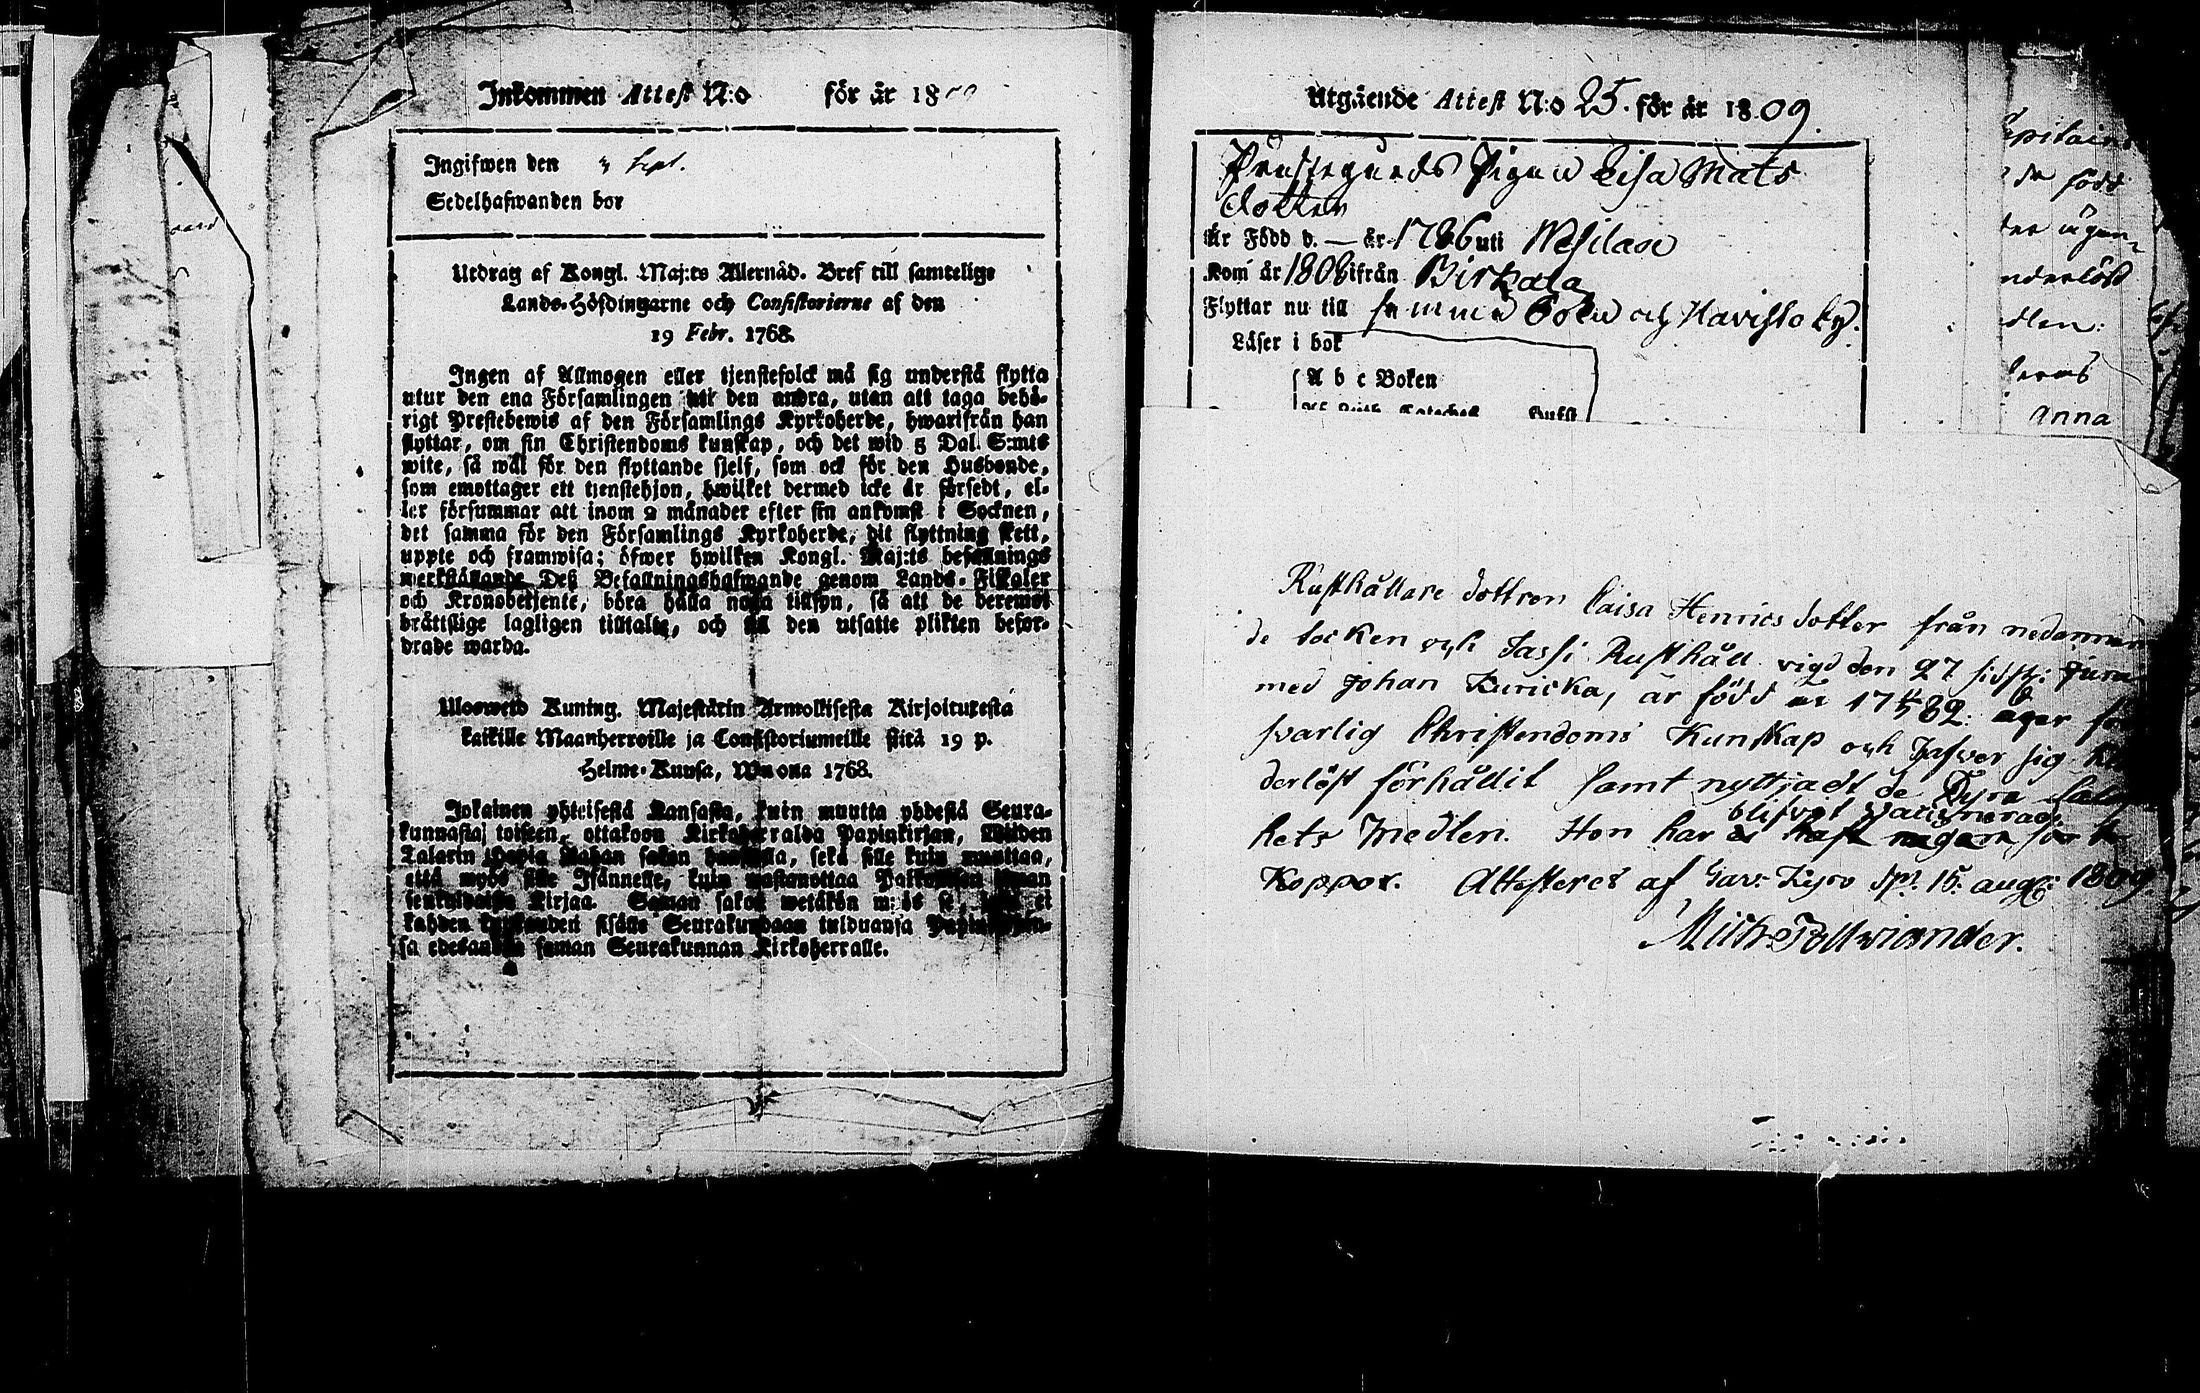 Inkommen Attest N:o för år 18
Ingifwen den Sept.
Sedelhafwanden bor
Utdrag af Kongl. Maj:ts Allernåd. Bref till samtelige
Lands-Höfdingarne och Consistorierne af den
19 Febr. 1768.
Ingen af Allmogen eller tjenstefolck må sig understå flytta
utur den ena Församlingen uti den andra, utan att taga behö-
rigt Prestebewis af den Församlings Kyrkoherde, hwarifrån han
flyttar, om sin Christendoms kunskap, och det wid 5 Dal. S:mts
wite, så wäl för den flyttande sjelf, som ock för den Husbonde,
som emottager ett tjenstehjon, hwilket dermed icke är försedt, el-
ler försummar att inom 2 månader efter sin ankomst i Socknen,
det samma för den Församlings Kyrkoherde, dit flyttning skett,
uppte och framwisa; öfwer hwilken Kongl. Maj:ts befallnings
werkställande Deß Befallningshafwande genom Lands-Fiskaler
och Kronobetjente, böra hålla noga tillsyn, så att de deremot
bråttslige lagligen tilltalte, och till den utsatte plikten befor-
drade warda.
Uloswetö Kuning. Majestätin Armollisesta Kirjoituxesta
kaikille Maanherroille ja Consistoriumeille siitä 19 p.
Helme-Kuusa, Wuonna 1768.
Jokainen yhteisestä Kansasta, kuin muutta yhdestä Seura-
kunnasta toiseen, ottakoon Kirkoherralda Papinkirjan, Wiiden
Talarin sakon haastolla, sekä sille kuin muuttaa,
että myös sille Isännelle, kuin wastanottaa
Kirjaa. Saman sakon wetäkön myös se, ei
kahden kuukauden sisälle Seurakundaan tulduansa
sa edesanna saman Seurakunnan Kirkoherralle.
Utgående Attest N:o 25. för år 1809.
Prästegårds Pigan Lisa Mats
dotter
Är Född d. — år 1786 uti Wesilax
Kom år 1808 ifrån Birkala
Flyttar nu till samma Sokn och Havisto by.
Läser i bok
A b c Boken
Capitain
född
anna
Rusthållare dottren Caisa Henrics dotter från nedannäm
de socken och Jassi Rusthåll vigd den 27 sidstl: Juni
med Johan Kuricka, är född år 17 4/5 82: äger för
svarlig Christendoms Kunskap och hafver sig kl
derlöst förhållit samt nyttjadt de Dyra Salig
hets medlen. Hon har blifvit Vaccinerad
ei haft någon
Koppor. Attesteres af Tav: Kyro Spl. 15: aug: 1809.
Mich. Pollviander.